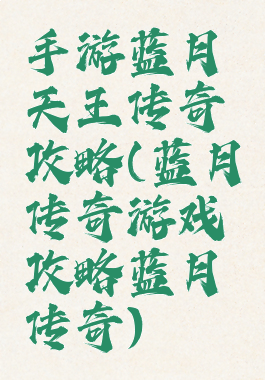 手游蓝月
天王传奇
攻略(蓝月
传奇游戏
攻略蓝月
传奇)